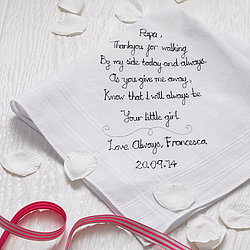 Papa,
Thankyou for walking
By my side today and always.
As you give me away,
Know that I will always be
Your little girl
Love Always, Francesca
20.09.14